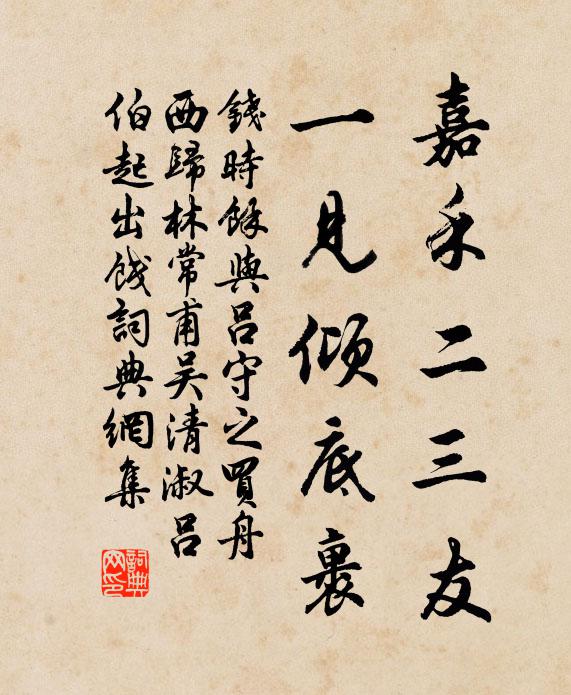 嘉禾二三友
一見傾底裹
錢時餘與呂守之買舟
西歸林常甫吴清淑呂
伯起出餞詞典網集
詞典網印